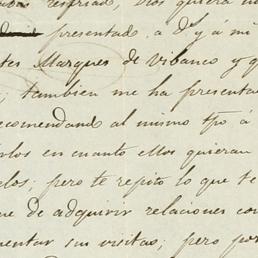 resfriado, Dios quiera
presentado a d'y á mi
Marques de Vibanco y q
; tambien me ha presenta
recomendand al mismo tpô á
rlos en cuanto ellos quieran
los; pero te repito lo que te
ue de adquirir relaciones con
mentar sus visitas; pero por